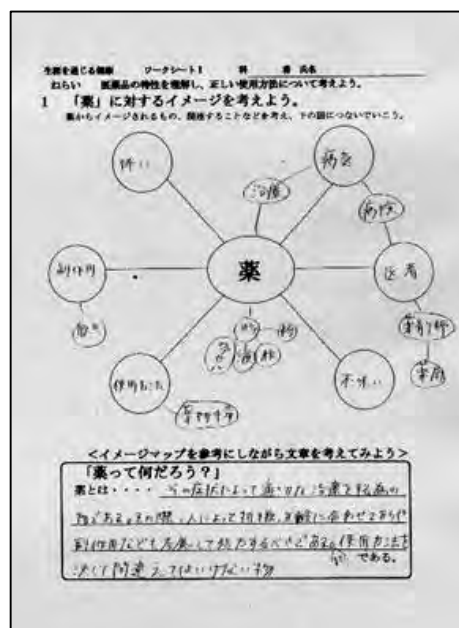 生涯を通じる健康 ワークシート1 科 番 氏名
ねらい 医薬品の特性を理解し、正しい使用方法について考えよう。
1 「薬」に対するイメージを考えよう。
薬からイメージされるもの、関連することなどを考え、下の図につないでいこう。
怖い
病気
治療
病院
副作用
薬
医者
粉
液
薬剤師
薬局
使用方法
不味い
<イメージマップを参考にしながら文章を考えてみよう>
「薬って何だろう？」
薬とは・・・・ その症状によって適切な治療をする為の
物である。その際、人によって
副作用なども考慮して処方するべきである。使用方法を
決して間違えてはいけない物 である。